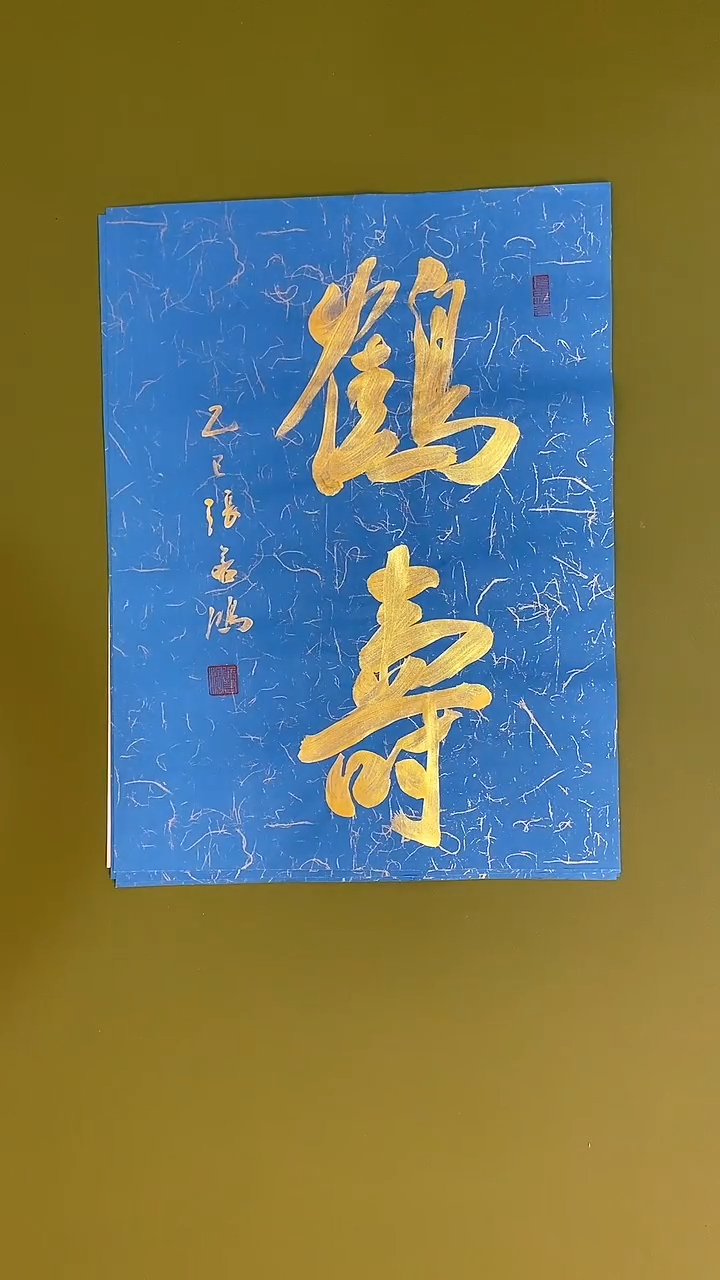 鶴壽
乙巳張若鴻